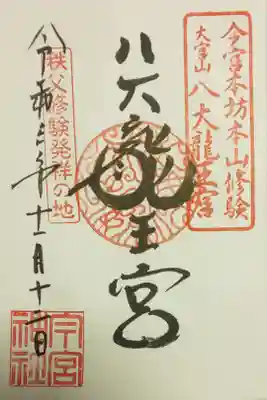 今宮本坊本山修験
大宮山 八大龍王宮
八大龍王宮
秩父修験発祥の地
令和三年十一月十二日
今宮神社